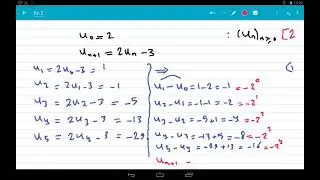 u₀ = 2 : (uₙ)ₙ≥₀ [2
uₙ₊₁ = 2uₙ - 3
u₁ = 2u₀ - 3 = 1
u₂ = 2u₁ - 3 = -1
u₃ = 2u₂ - 3 = -5
u₄ = 2u₃ - 3 = -13
u₅ = 2u₄ - 3 = -29
⇒
u₁ - u₀ = 1 - 2 = -1 = -2⁰
u₂ - u₁ = -1 - 1 = -2 = -2¹
u₃ - u₂ = -5 + 1 = -4 = -2²
u₄ - u₃ = -13 + 5 = -8 = -2³
u₅ - u₄ = -29 + 13 = -16 = -2³
uₙ₊₁ -